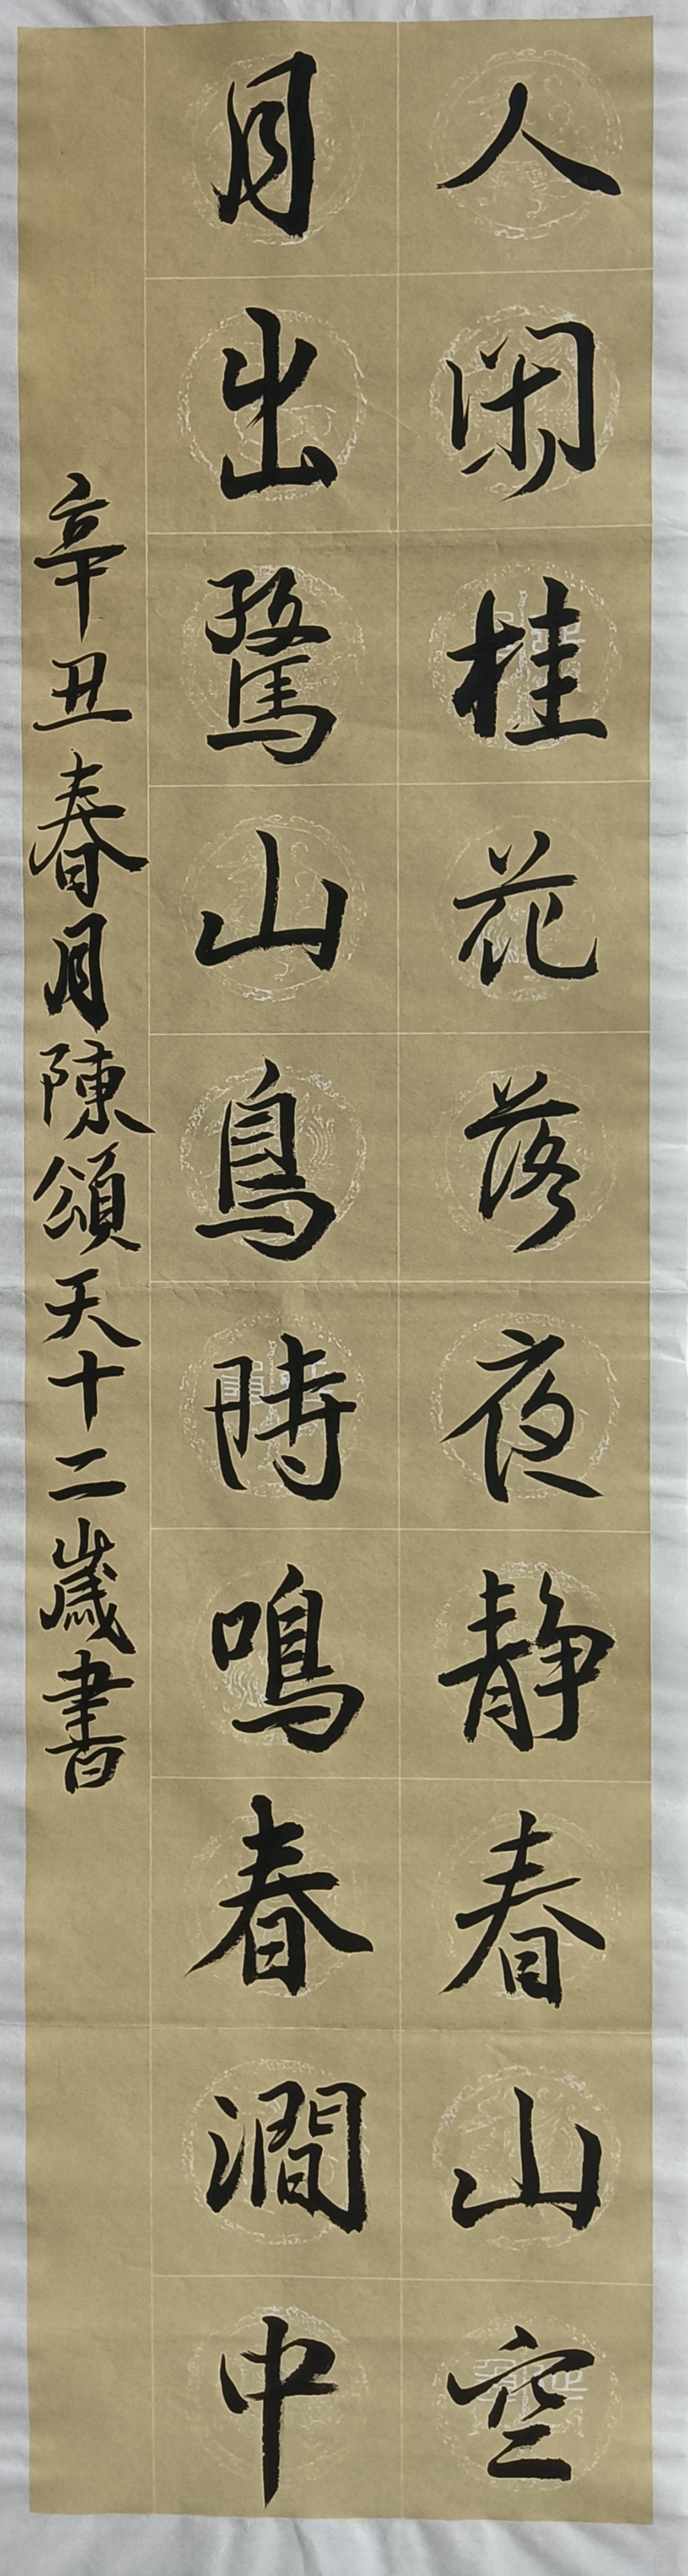 人閑桂花落夜静春山空
月出驚山鳥時鳴春澗中
辛丑春月陳頌天十二歲書